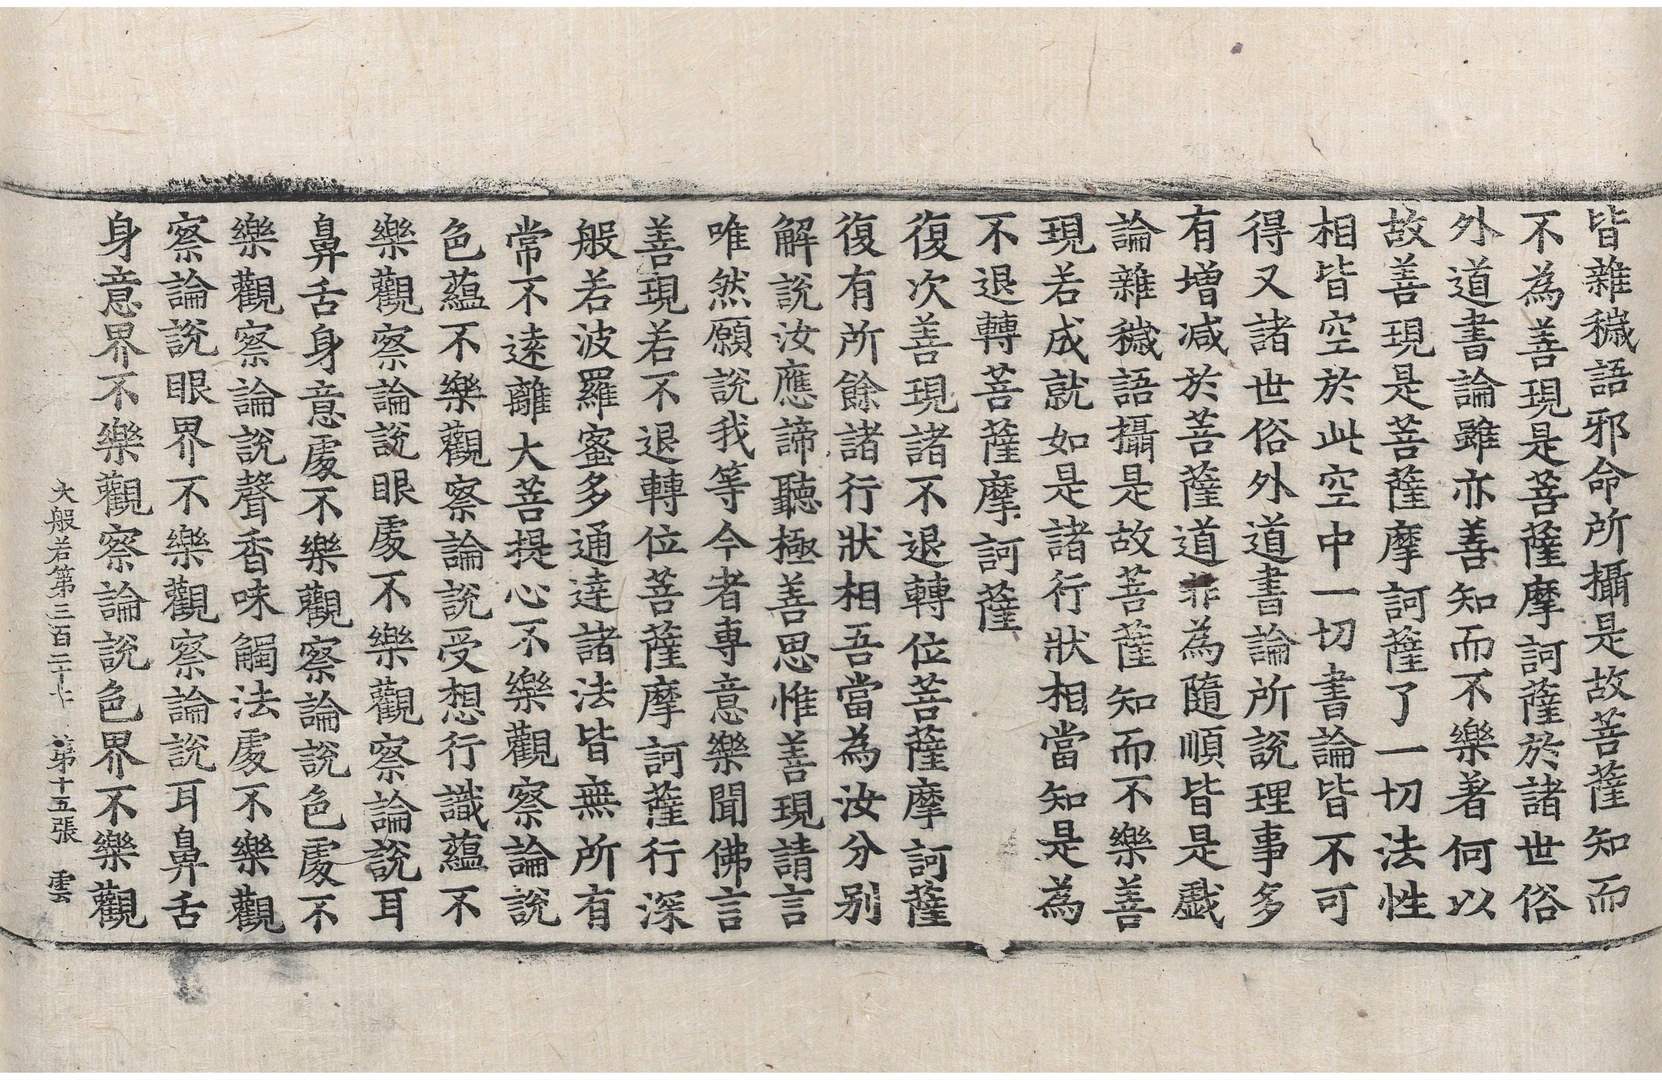 皆雜穢語邪命所攝是故菩薩知而
不為善現是菩薩摩訶薩於諸世俗
外道書論雖亦善知而不樂著何以
故善現是菩薩摩訶薩了一切法性
相皆空於此空中一切書論皆不可
得又諸世俗外道書論所說理事多
有增減於菩薩道非為隨順皆是戲
論雜穢語攝是故菩薩知而不樂善
現若成就如是諸行狀相當知是為
不退轉菩薩摩訶薩
復次善現諸不退轉位菩薩摩訶薩
復有所餘諸行狀相吾當為汝分別
解說汝應諦聽極善思惟善現請言
唯然願說我等今者專意樂聞佛言
善現若不退轉位菩薩摩訶薩行深
般若波羅蜜多通達諸法皆無所有
常不遠離大菩提心不樂觀察論說
色蘊不樂觀察論說受想行識蘊不
樂觀察論說眼處不樂觀察論說耳
鼻舌身意處不樂觀察論說色處不
樂觀察論說聲香味觸法處不樂觀
察論說眼界不樂觀察論說耳鼻舌
身意界不樂觀察論說色界不樂觀
大般若第三百二十七 第十五張 雲